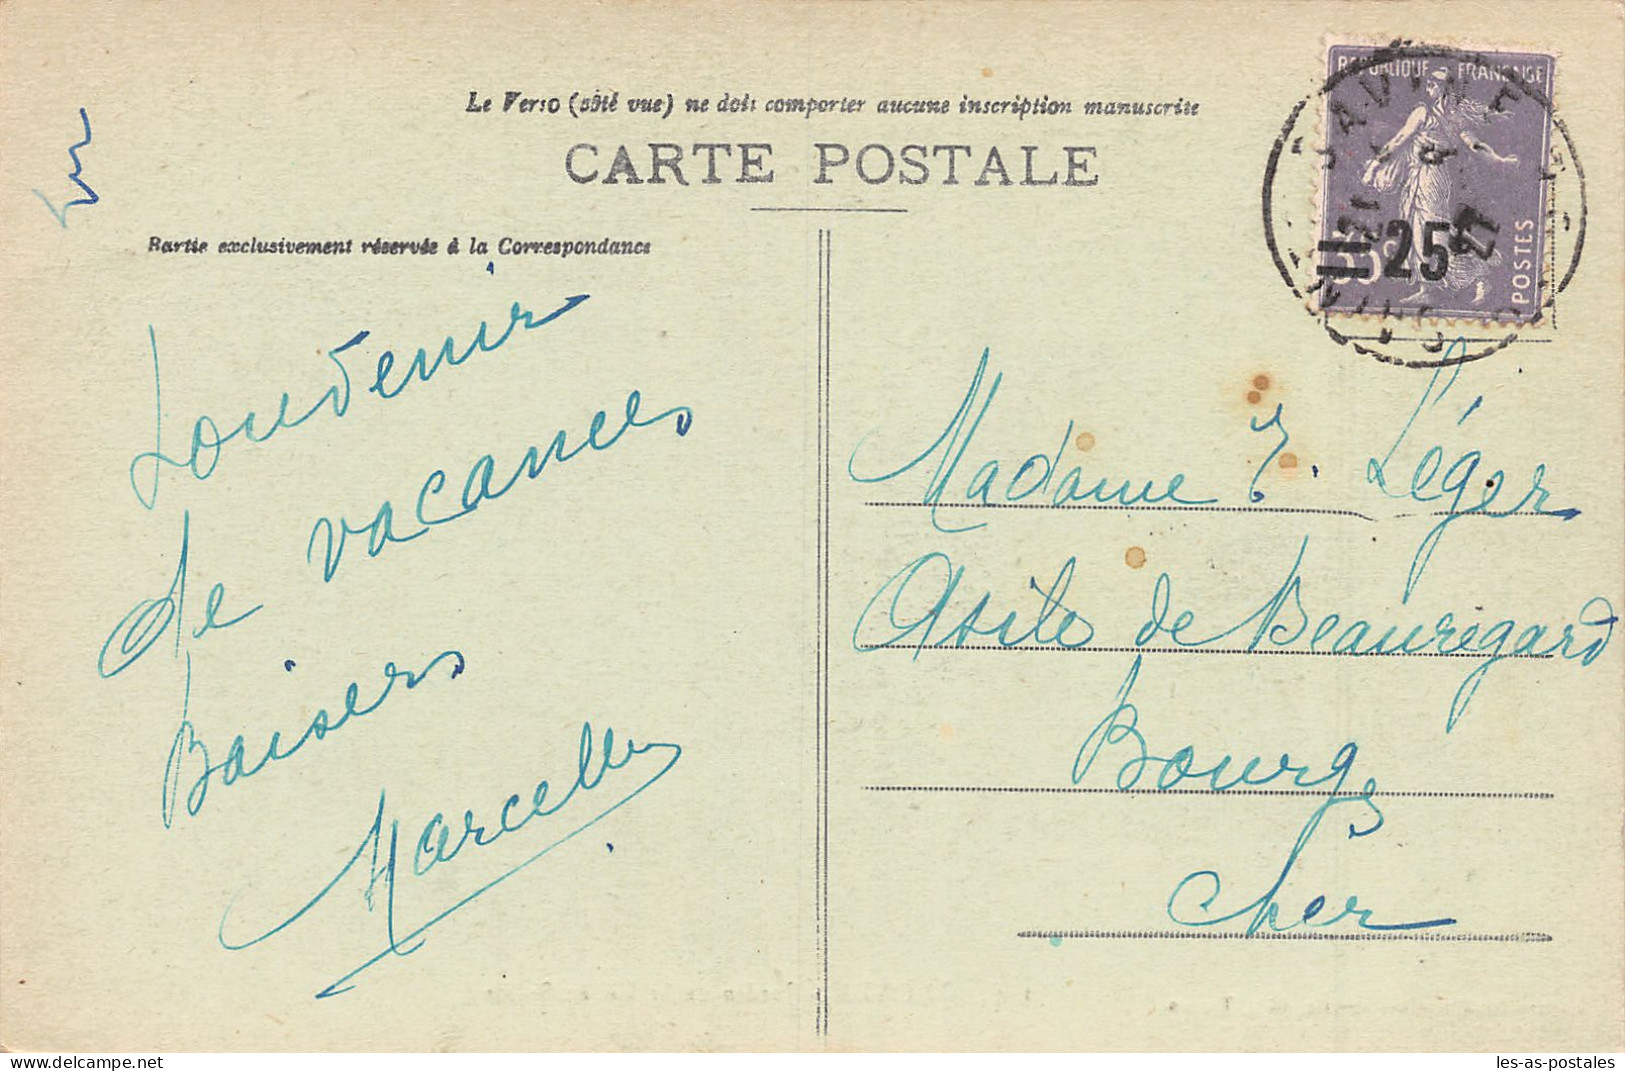 Le Verso (côté vue) ne doit comporter aucune inscription manuscrite
CARTE POSTALE
Partie exclusivement réservée à la Correspondance
RÉPUBLIQUE FRANÇAISE
POSTES
25c
SAVINES
21
27
Souvenir
de vacances
Baisers
Marcelle
Madame E. Léger
Asile de Beauregard
Bourges
Cher
delcampe.net
les-as-postales